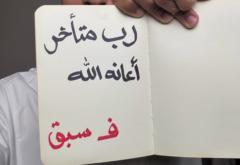 رب متأخر
أعانه الله
ف سبق